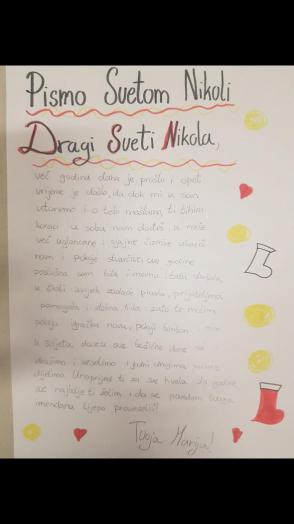 Pismo Svetom Nikoli
Dragi Sveti Nikola,
već godina dana je prošla i opet
vrijeme je došlo, da dok mi u san
utonemo i o tebi maštamo, ti tihim
koraci u sobu nam dođeš i u naše
već uglancane i sjajne čizme ubaciš
nam i pokoju stvarčicu. ove godine
poslušna sam bila i mamu i tatu slušala,
u školi uvijek zadaće pisala, prijateljima
pomagala i dobra bila. zato te molim
pokoju igračku novu, pokoji bombon i
u svijeta, da
i veselimo i
dijelimo. Unaprijed ti za sve hvala. Za godine
sve najbolje ti želim i da se
mendanu lijepo provedeš!
Tvoja Marija!